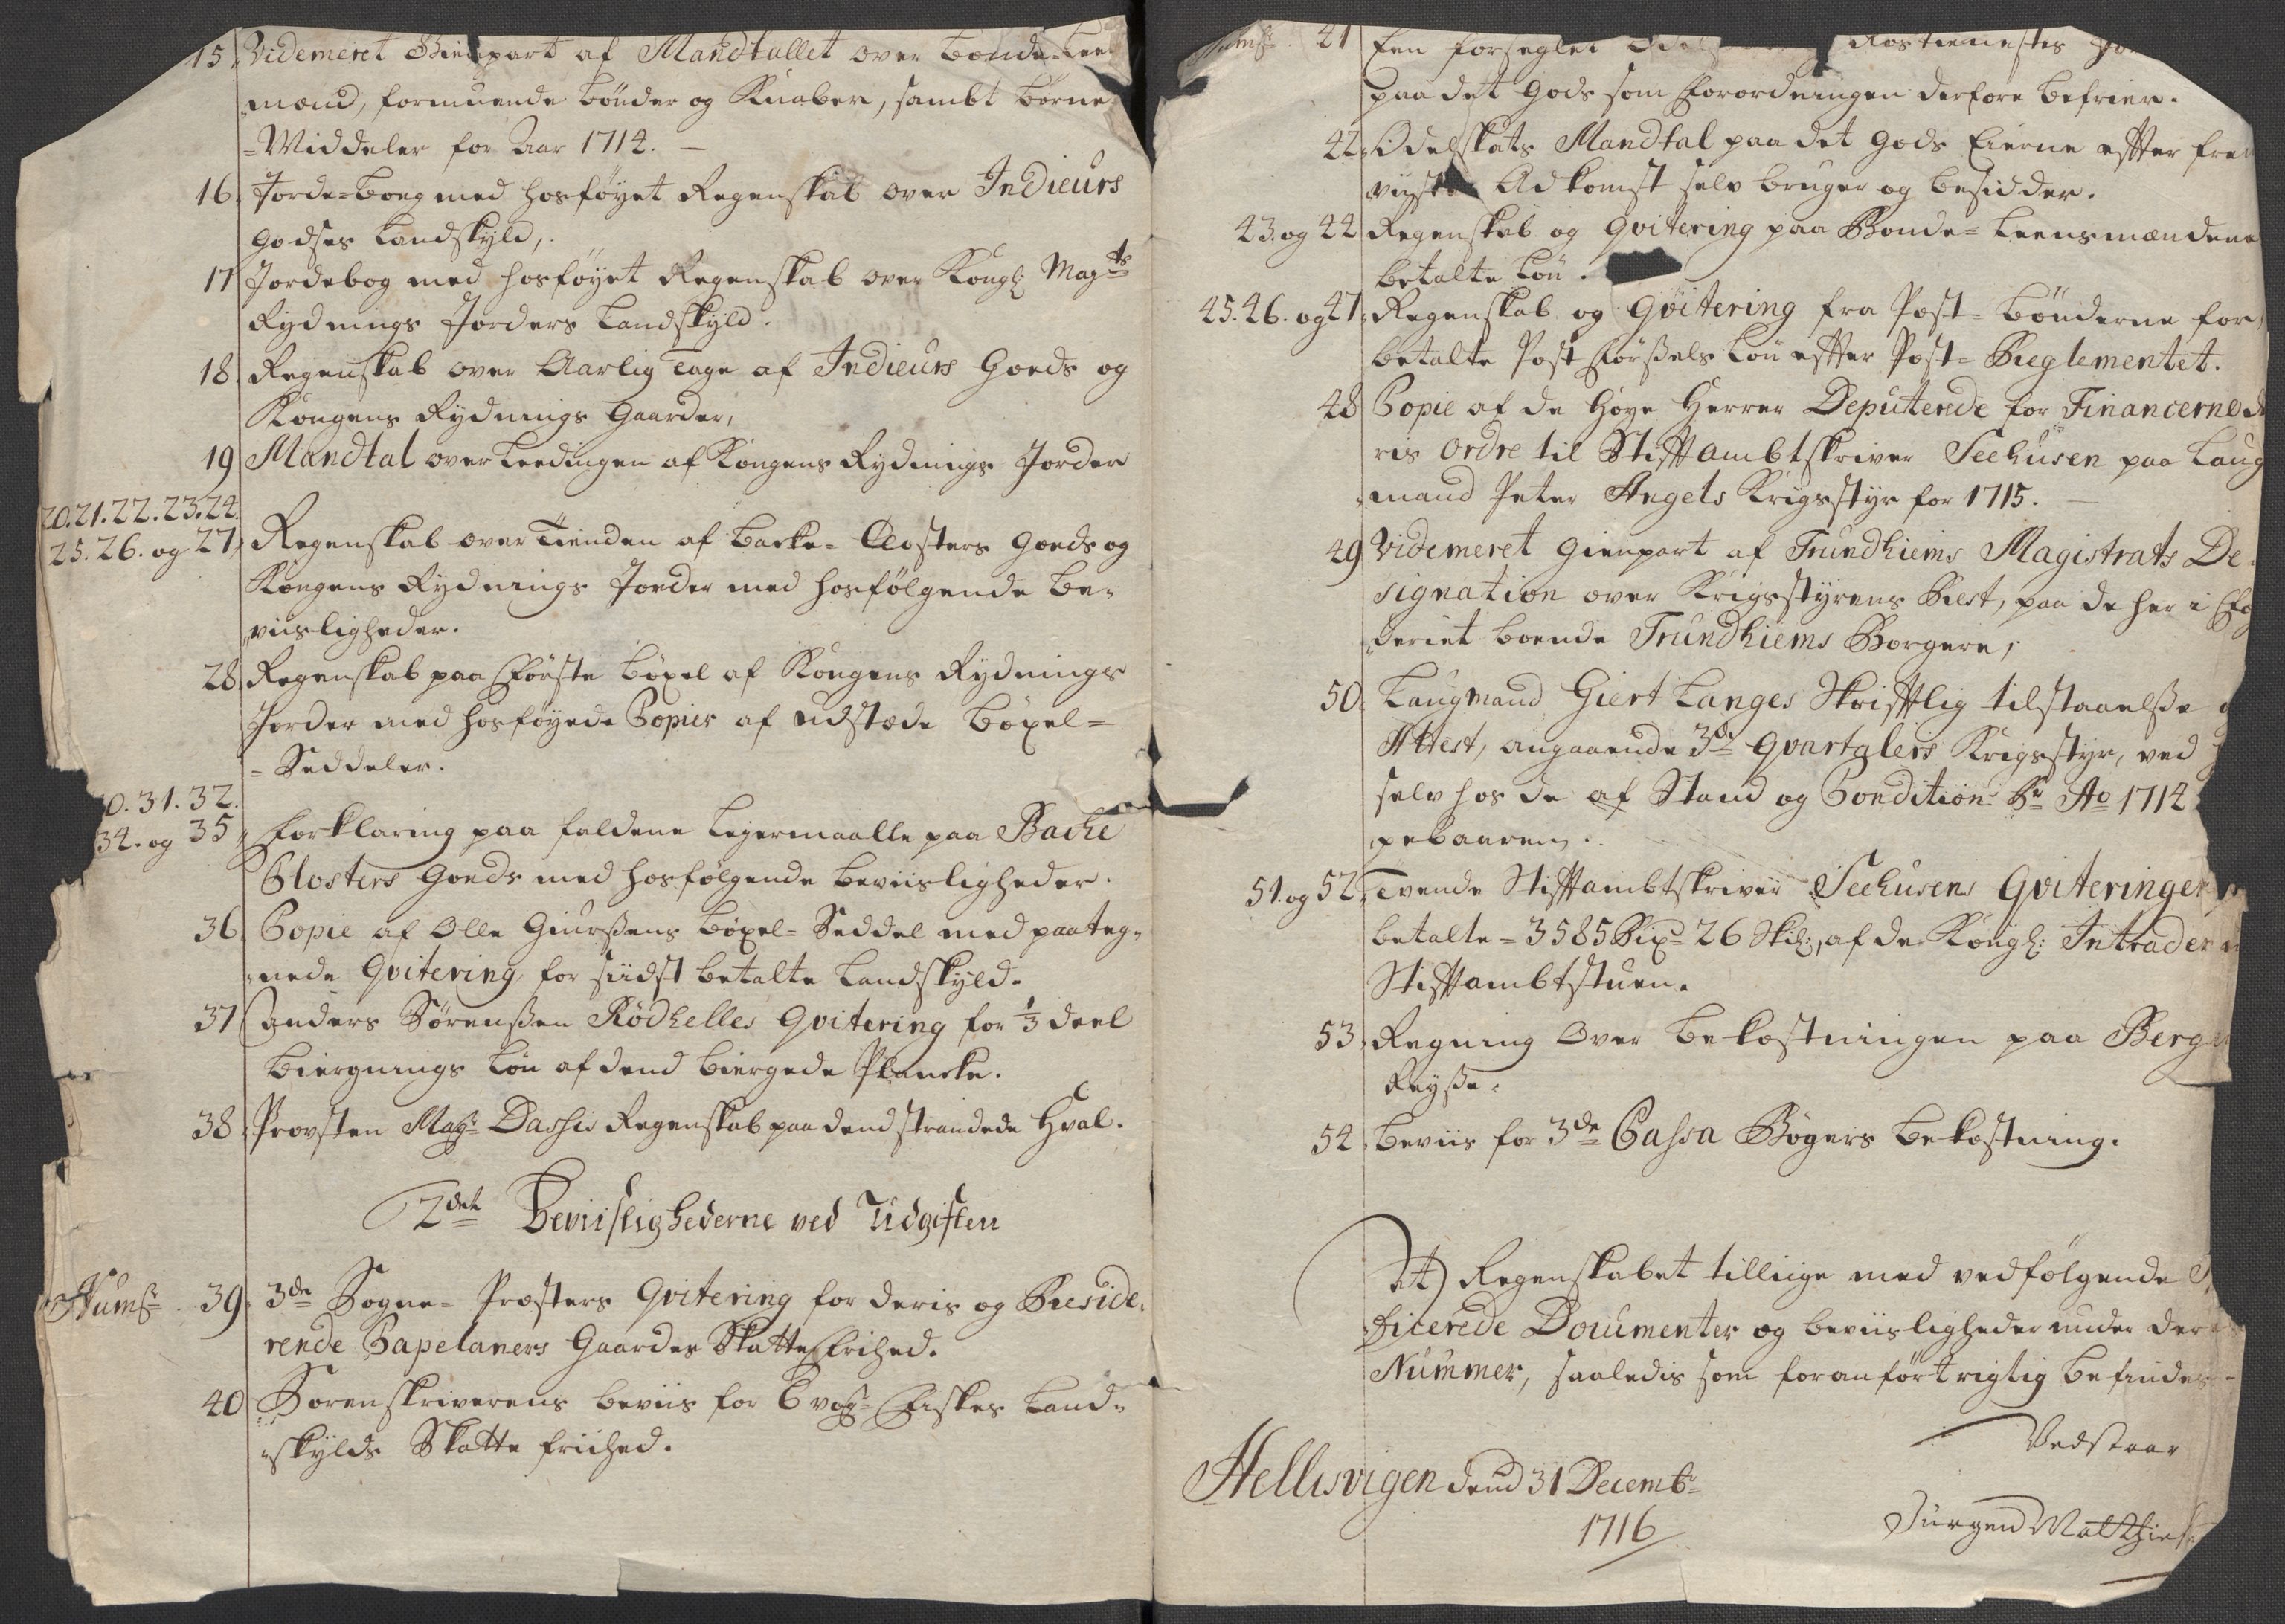 15. Videmeret Gienpart af Mandtallet over bonde-Leens
mænd, formuende bønder og Knaber, sambt børne
=Middeler for Aar 1714. –
16. Jorde-boeg med hosføyet Regenskab over Indieurs
Godses Landskyld,
17 Jordebog med hosføyet Regenskab over Kongl: Mayts
Rydnings Jorders Landskyld.
18. Regenskab over Aarlig Tage af Indieurs Goeds og
Kongens Rydnings Gaarder,
19 Mandtal over Leedingen af Kongens Rydnings Jorder
20.21.22.23.24.
25.26. og 27, Regenskab over Tienden af Backe-Closters Goeds og
Kongens Rydnings Jorder med hosfølgende be-
viisligheder.
28. Regenskab paa Første bøxel af Kongens Rydnings
Jorder med hosføyede Copier af udstæde bøxel=
=Seddeler.
0. 31. 32.
34. og 35, Forklaring paa faldene Leyermaalle paa Bache
Closters Goeds med hosfølgende beviisligheder.
36. Copie af Olle Giurßens bøxel=Seddel med paateg-
nede Qvitering for siidst betalte Landskyld.
37 Anders Sørenßen Rødhelles Qvitering for 1/3 deel
biergnings Løn af dend biergede Plancke.
38. Provsten Magr Dasses Regenskab paa dend strandede Hval.
2det Beviislighederne ved Udgiften
Numr. 39. 3de Sogne=Præsters Qvitering for deris og Reside-
rende Capelaners Gaardes Skatte Frihed.
40 Sorenskriverens beviis for 6 vog Fiskes Land-
skylds Skatte friihed.
Numr. 41 Een forseglet Rostienestes
paa det Gods som Forordningen derfore befrier.
42. Odelskats Mandtal paa det Gods Eierne effter frem
viiste Adkomst selv bruger og besidder.
43. og 44 Regenskab og Qvitering paa Bonde=Leensmændene
betalte Løn.
45.46. og 47. Regenskab og Qvitering fra Post=Bønderne for
betalte Post Førßels Løn effter Post=Reglementet.
48 Copie af de Høye Herrer Deputerede for Financerne de
ris Ordre til Stiftambtskriver Seehusen paa Laug
mand Peter Angels Krigsstyr for 1715.
49 Videmeret Gienpart af Trundhiems Magistrats De-
signation over Krigsstyrens Rest, paa de her i Fog
deriet boende Trundhiems Borgere,
50. Laugmand Giert Langes Skrifftlig tilstaaelße
Attest, angaaende 3de Qvartalers Krigsstyr, ved
selv hos de af Stand og Condition Er Ao 1714
pebaaren.
51. og 52. Tvende Stiftambtskriver Seehusens Qviteringer
betalte = 3585 Rixd 26 Skil:, af de Kongl: Intrader
Stiftambtstuen.
53. Regning Over bekostningen paa Berg
Reyße.
54. beviis for 3de Cassa Bøgers bekostning.
At) Regenskabet tilliige med vedfølgende
ficerede Documenter og beviisligheder under der
Nummer, saaledis som foranført rigtig befindes
Vedstaar
Hellesvigen dend 31 Decembr
1716
Jurgen Matthie